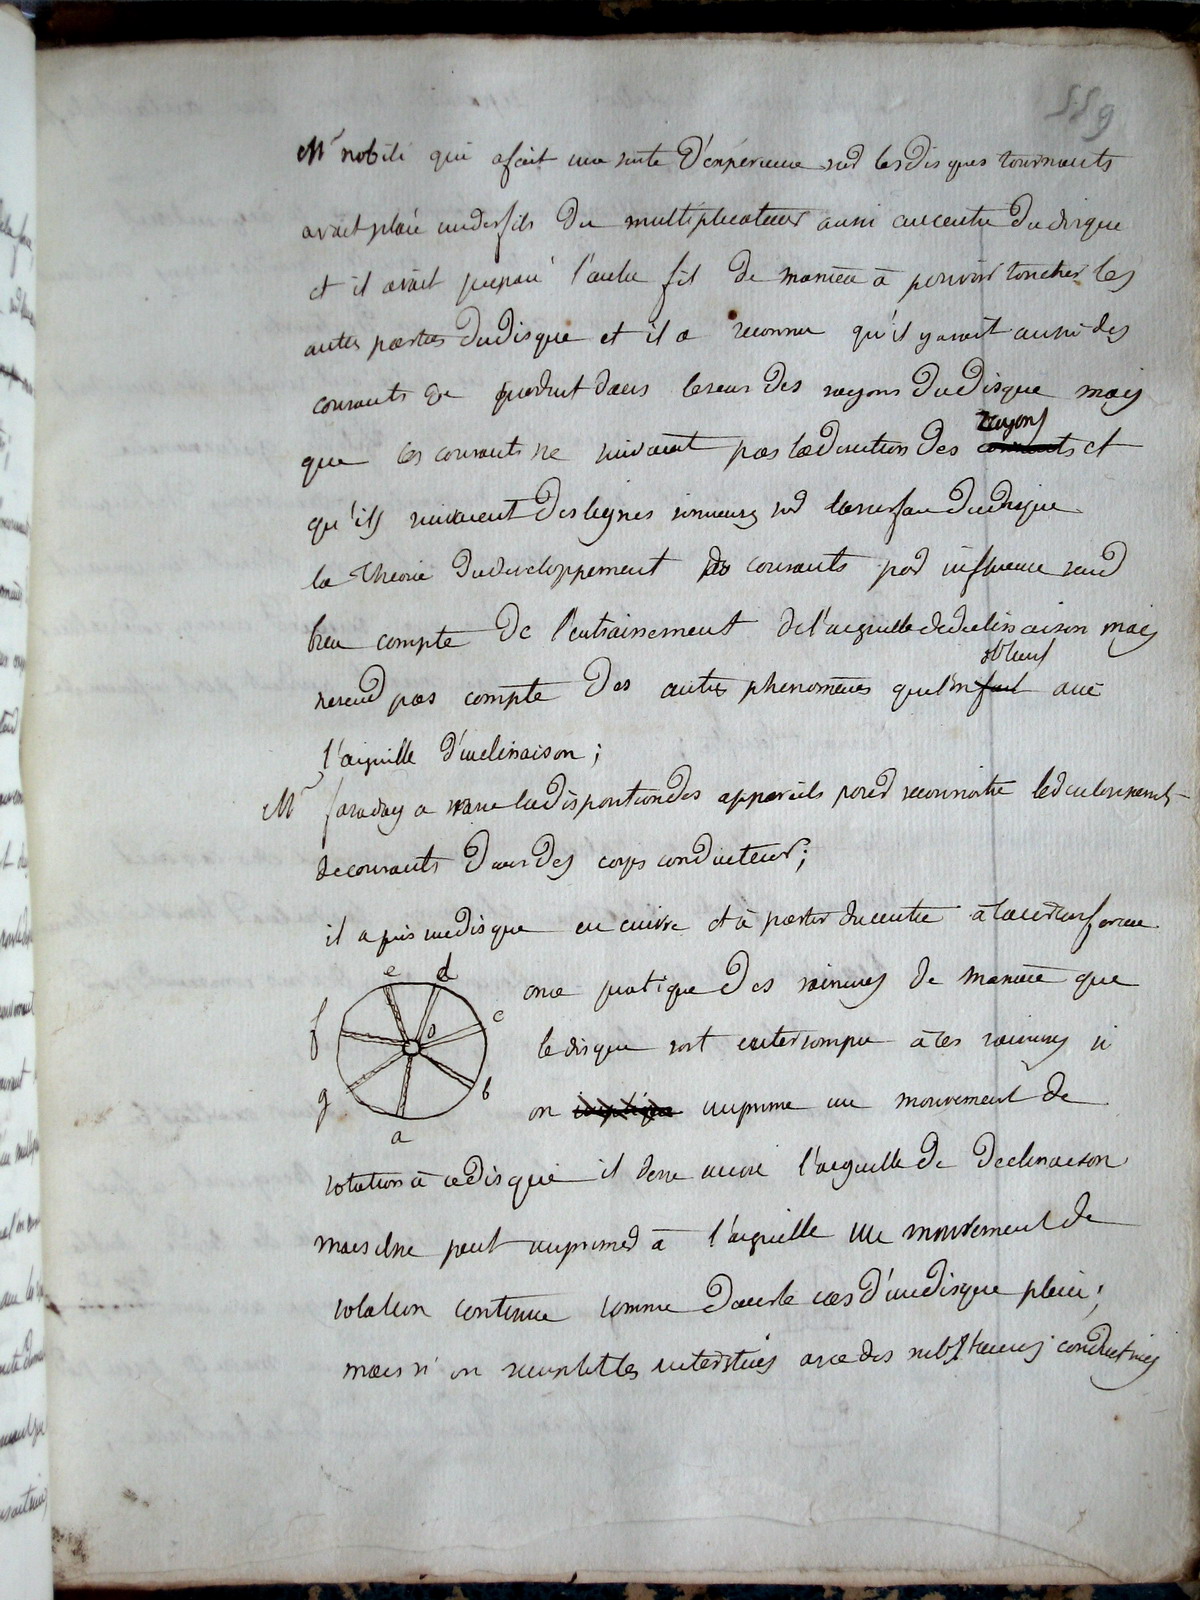 559
Mr nobili qui a fait une suite d'experience sur les disques tournants
avait placé un des fils du multiplicateur aussi au centre du disque
et il avait preparé l'autre fil de maniere à pouvoir toucher les
autres parties du disque et il a reconnu qu'il y avait aussi des
courants de produit dans le sens des rayons du disque mais
que ces courants ne suivaient pas la direction des courants rayons et
qu'ils suivaient des lignes sinueuses sur la surface du disque
la theorie du developpement des courants par influence rend
bien compte de l'entrainement de l'aiguille de declinaison mais
ne rend pas compte des autres phenomenes que l'on fait obtient avec
l'aiguille d'inclinaison ;
Mr faraday a varié la disposition des appareils pour reconnoitre le
de courants dans des corps conducteur ;
il a pris un disque en cuivre et à partir du centre à la circonference
on a pratiqué des rainures de maniere que
le disque soit interrompu à ces rainures si
on imprime un mouvement de
rotation à ce disque il devie encore l'aiguille de declinaison
mais il ne peut imprimer à l'aiguille un mouvement de
rotation continue comme dans le cas d'un disque plein ;
mais si on remplit les interstices avec des substances conductrices
e d
f o c
g b
a